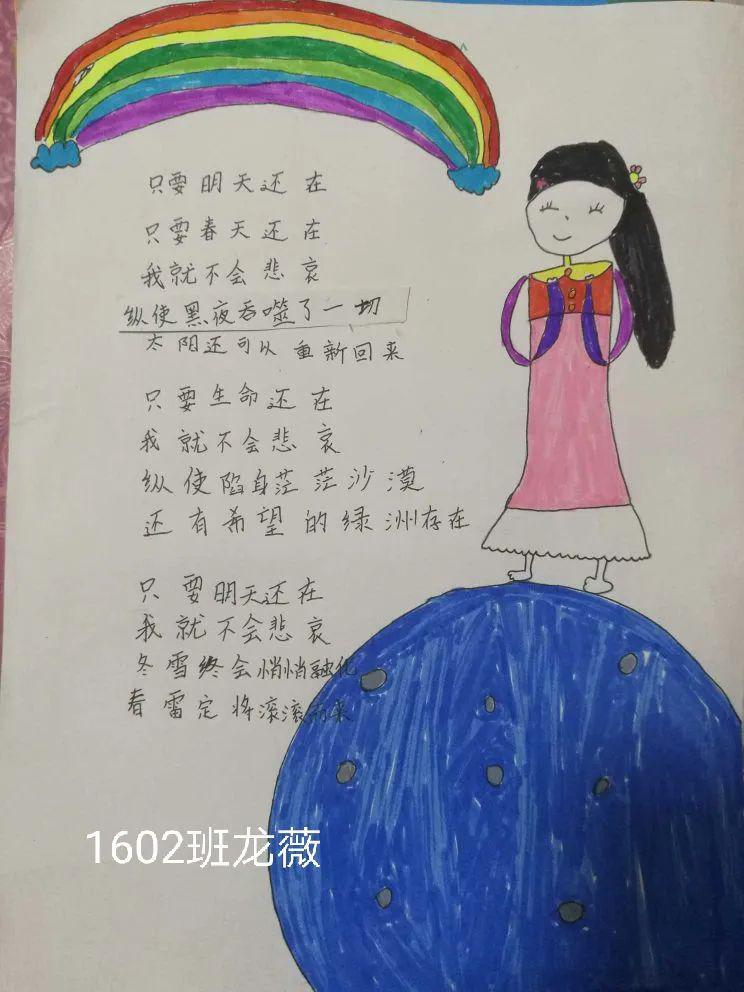 只要明天还在
只要春天还在
我就不会悲哀
纵使黑夜吞噬了一切
太阳还可以重新回来
只要生命还在
我就不会悲哀
纵使陷身茫茫沙漠
还有希望的绿洲存在
只要明天还在
我就不会悲哀
冬雪终会悄悄融化
春雷定将滚滚而来
1602班龙薇